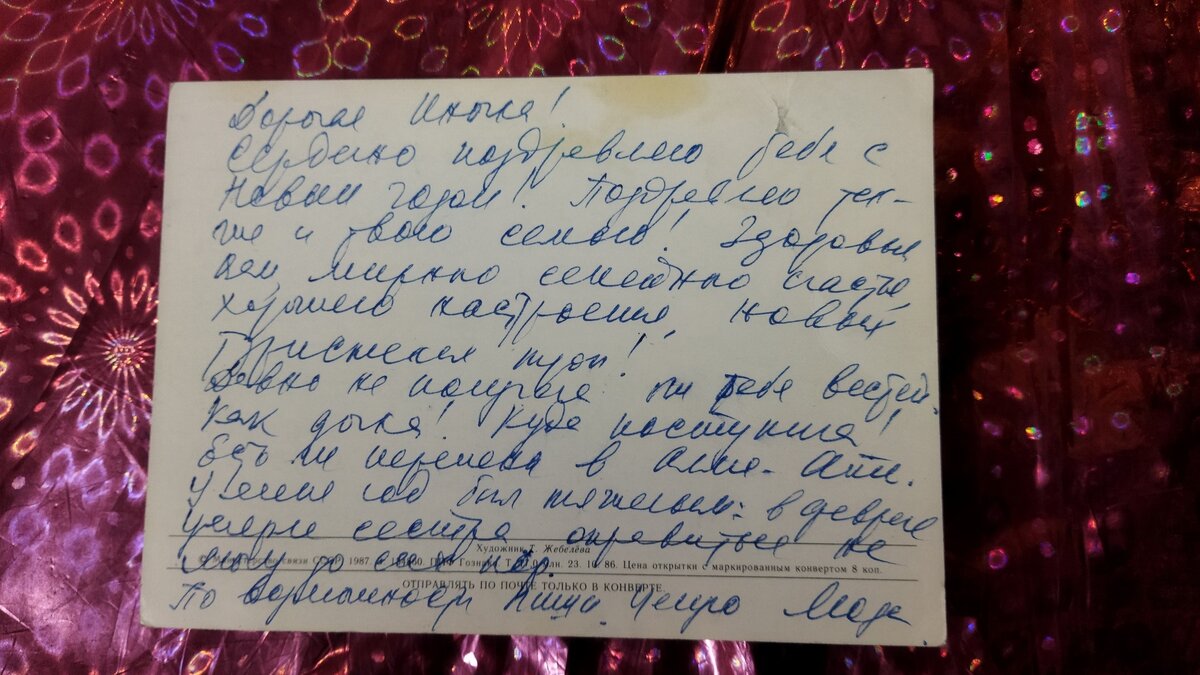 Дорогая Инночка!
Сердечно поздравляю тебя с
Новым годом! Поздравляю так-
же и твою семью! Здоровья
вам, мирного семейного счастья,
хорошего настроения, новых
туп!
Давно не получала от тебя вестей.
Как дочка! Куда поступила!
Есть ли перемены в Алма-Ате.
У меня год был тяжелым: в феврале
умерла сестра оправиться не
Художник Т. Жебелёва
могу до сих пор.
связи 1987. Гознака. 23. 10 86. Цена открытки с маркированным конвертом 8 коп.
ОТПРАВЛЯТЬ ПО ПОЧТЕ ТОЛЬКО В КОНВЕРТЕ
По возможности пиши.